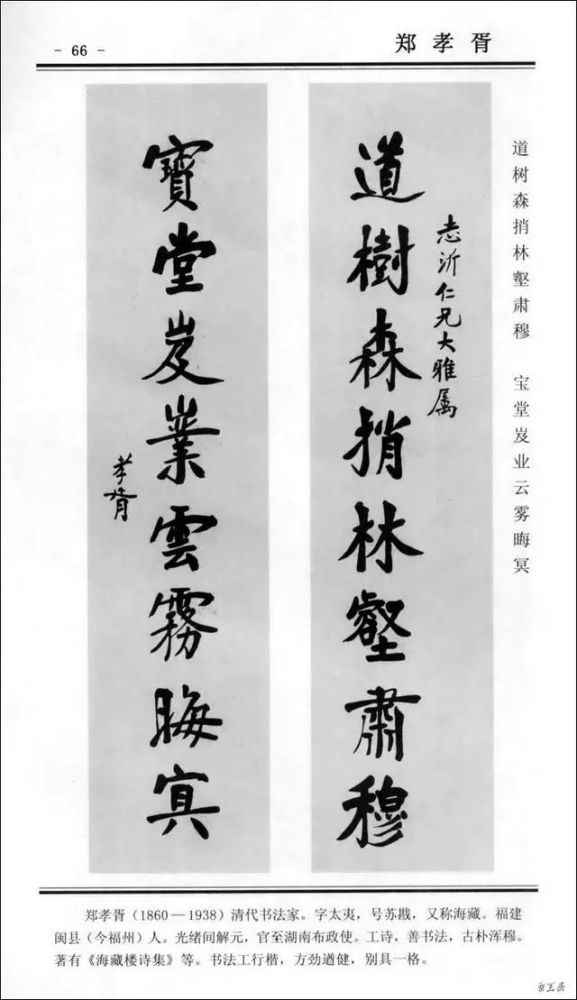 - 66 -
郑孝胥
道树森捎林壑肃穆　宝堂岌业云雾晦冥
志沂仁兄大雅属
道樹森捎林壑肅穆
寶堂岌業雲霧晦冥
孝胥
郑孝胥（1860—1938）清代书法家。字太夷，号苏戡，又称海藏。福建
闽县（今福州）人。光绪间解元，官至湖南布政使。工诗，善书法，古朴浑穆。
著有《海藏楼诗集》等。书法工行楷，方劲遒健，别具一格。